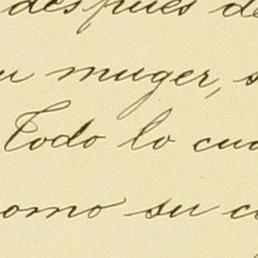 después de
su muger, s
Todo lo cua
como su c